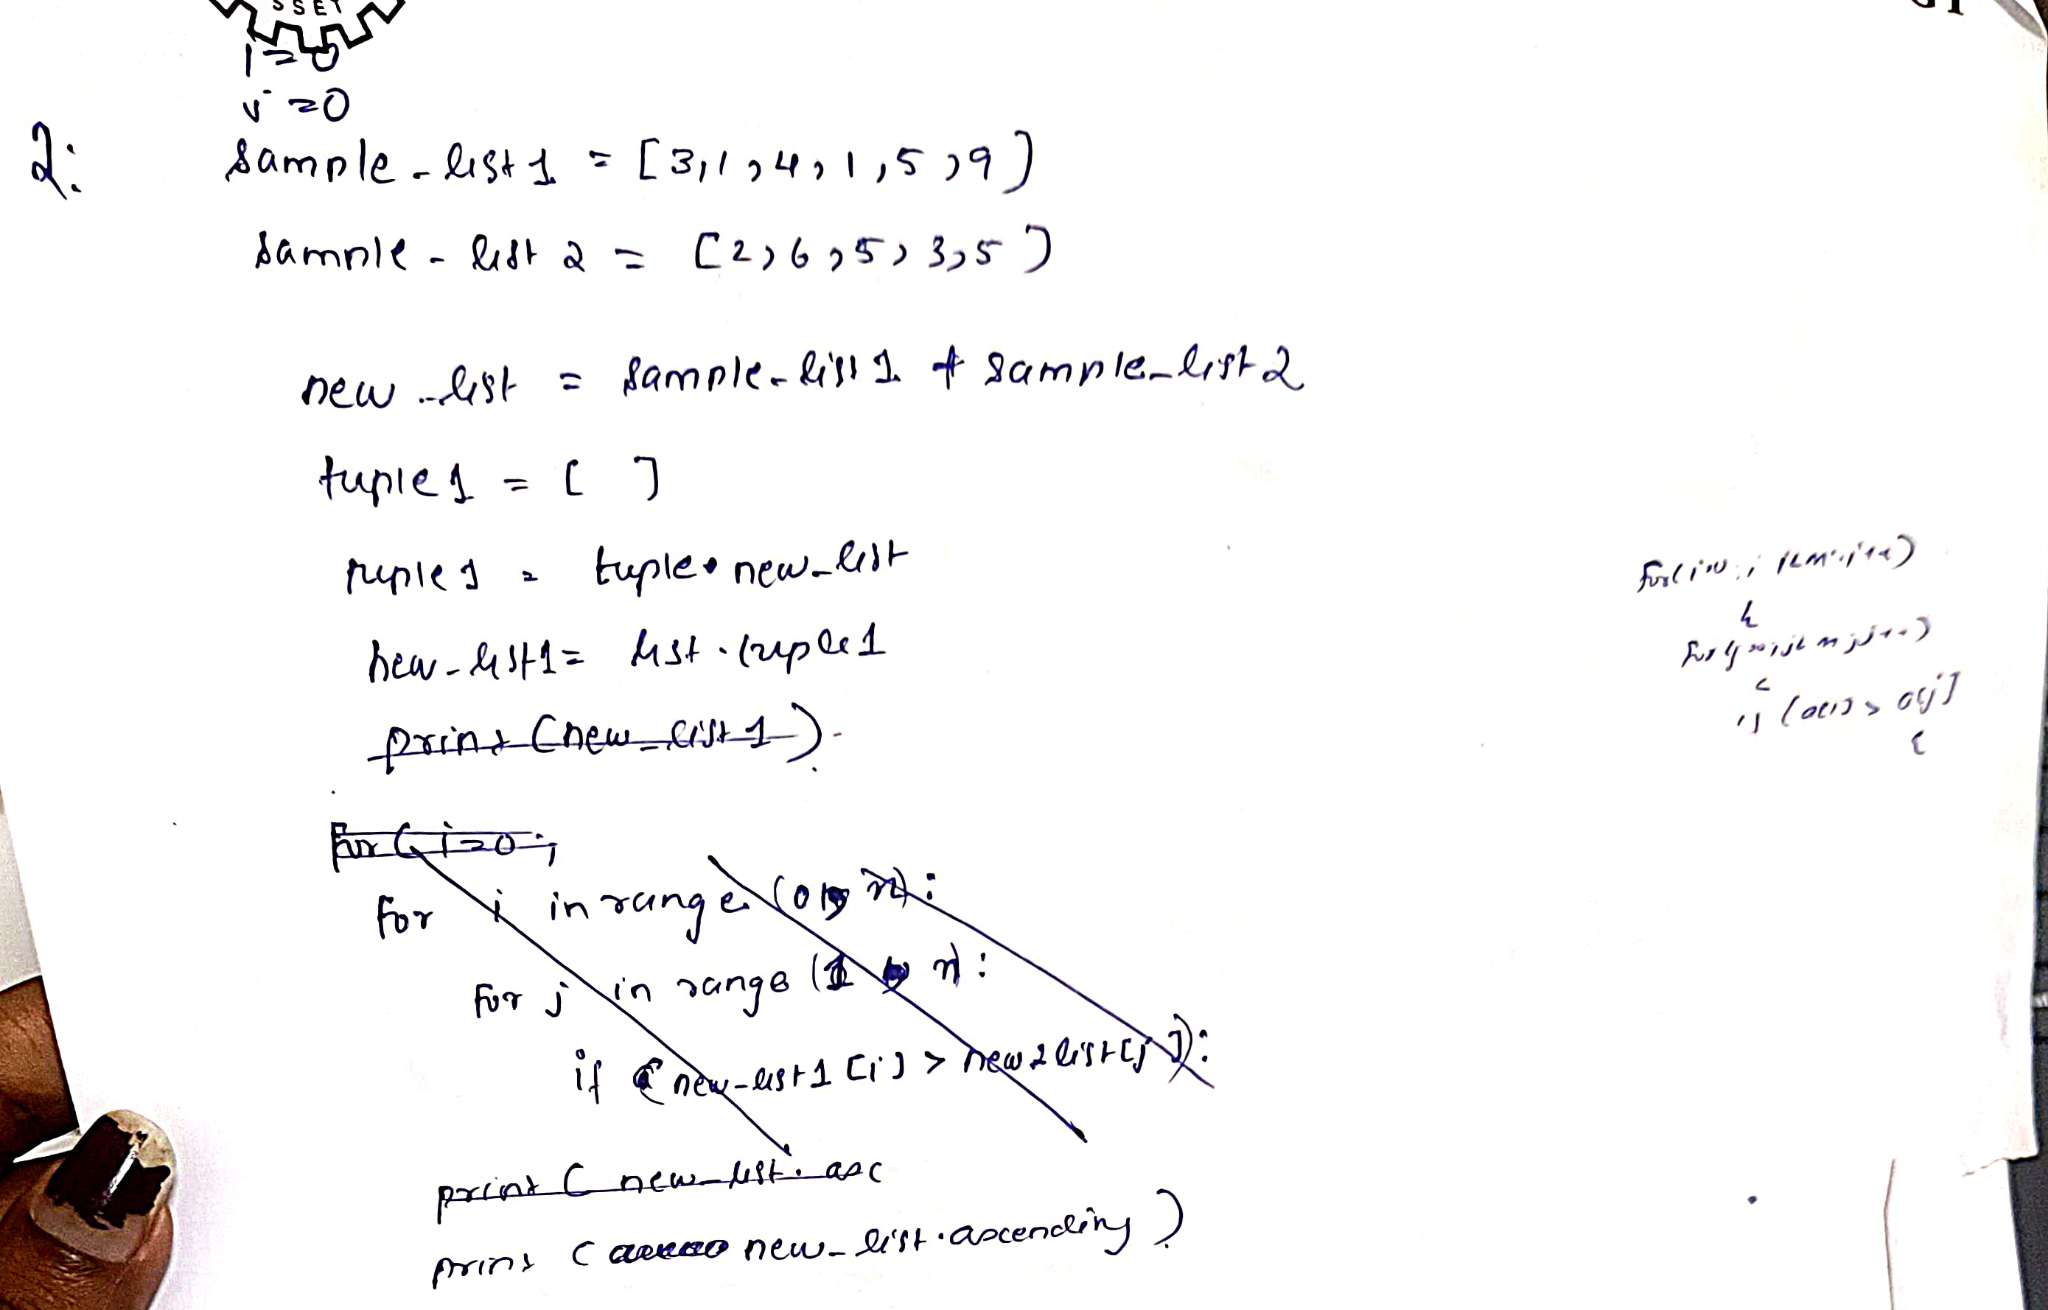 SSET
i=0
j=0
2:
sample-list1 = [3,1,4,1,5,9]
sample-list2 = [2,6,5,3,5]
new-list = sample-list1 + sample-list2
tuple1 = [ ]
tuple1 = tuple. new-list
new-list1= list.tuple1
print (new-list1)
for ( i=0;
for i in range (0 n):
for j in range (1 n):
if (new-list1 [i] > new2list[j]):
print ( new-list. asc
print ( new-list.ascending )
for(i=0; i<n; i++)
{
for(j=0; j<n; j++)
{
if (a[i] > a[j]
{